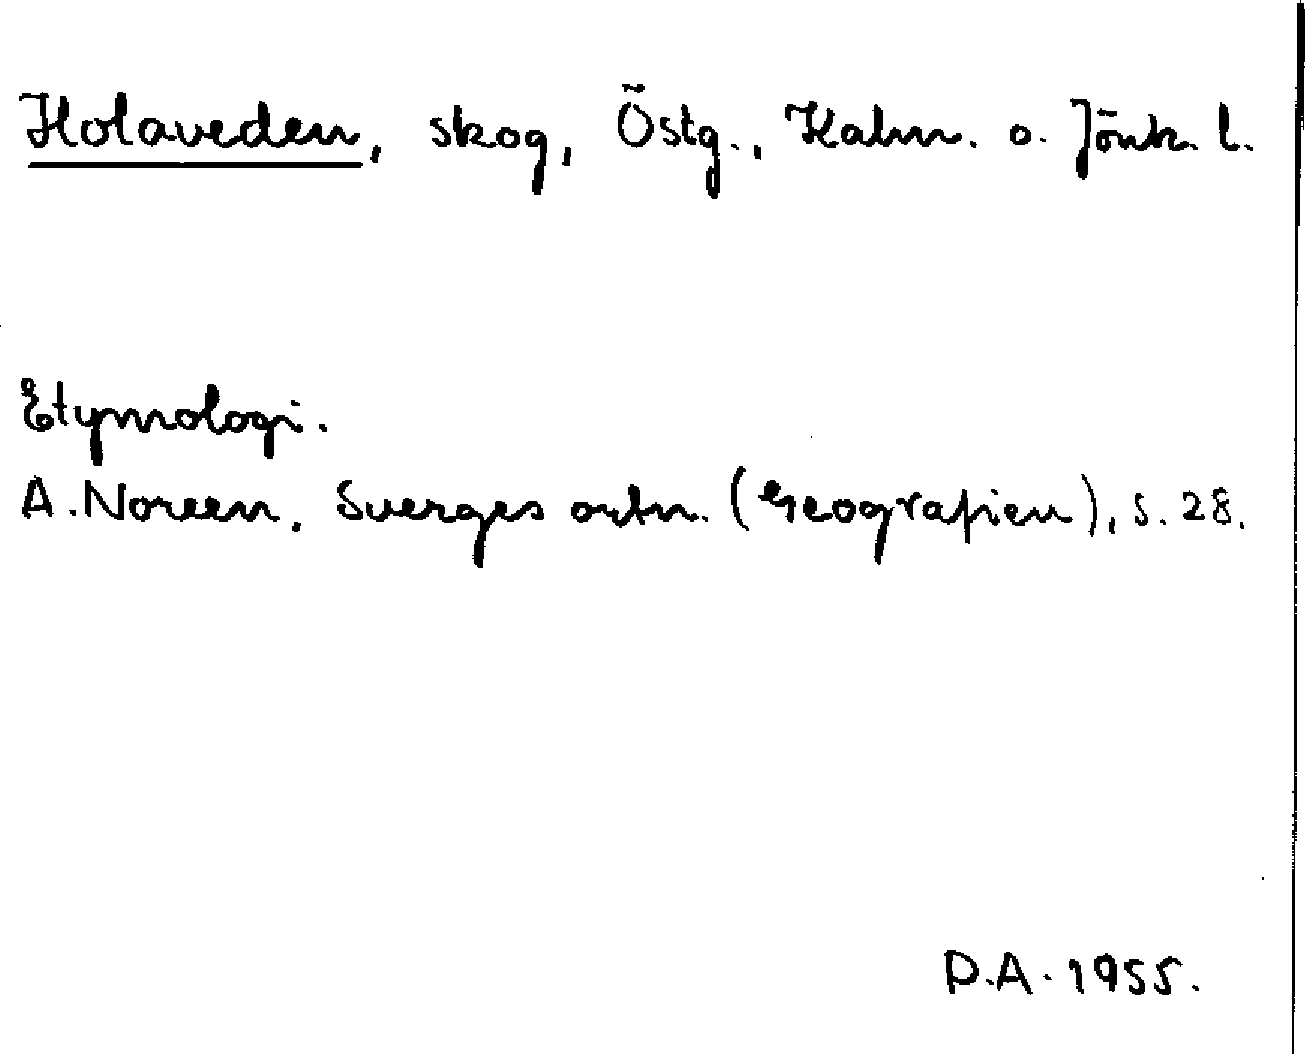 Holaveden, skog, Östg., Kalm. o. Jönk. l.
Etymologi.
A. Noreen, Sverges ortn. (Geografien), s. 28.
D.A. 1955.